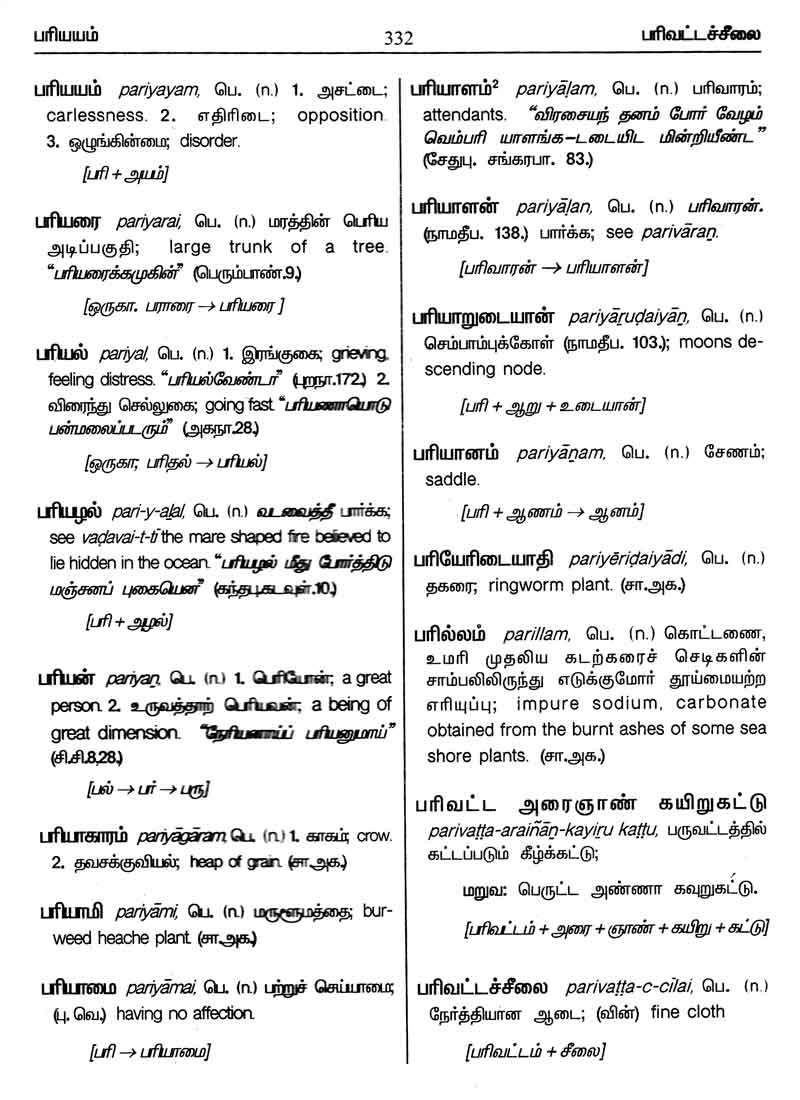 பரியயம்
332
பரிவட்டச்சீலை
பரியயம் pariyayam, பெ. (n.) 1. அசட்டை;
carlessness. 2. எதிரிடை; opposition.
3. ஒழுங்கின்மை; disorder.
[பரி + அயம்]
பரியரை pariyarai, பெ. (n.) மரத்தின் பெரிய
அடிப்பகுதி; large trunk of a tree.
“பரியரைக்கமுகின்” (பெரும்பாண்.9.)
[ஒருகா. பராரை → பரியரை ]
பரியல் pariyal, பெ. (n.) 1. இரங்குகை; grieving,
feeling distress. “பரியல்வேண்டா” (புறநா.172.) 2.
விரைந்து செல்லுகை; going fast. “பரியணாயொடு
பன்மலைப்படரும்” (அகநா.28.)
[ஒருகா; பரிதல் → பரியல்]
பரியழல் pari-y-aḻal, பெ. (n.) வடவைத்தீ பார்க்க;
see vaḍavai-t-tī the mare shaped fire believed to
lie hidden in the ocean. “பரியழல் மீது போர்த்திடு
மஞ்சனப் புகையென” (கந்தபு.கடவுள்.10.)
[பரி + அழல்]
பரியன் pariyaṉ, பெ. (n.) 1. பெரியோன்; a great
person. 2. உருவத்தாற் பெரியவன்; a being of
great dimension. “நேரியனாய்ப் பரியனுமாய்”
(சி.சி.8,28.)
[பல் → பர் → பரு]
பரியாகாரம் pariyāgāram, பெ. (n.) 1. காகம்; crow.
2. தவசக்குவியல்; heap of grain. (சா.அக.)
பரியாமி pariyāmi, பெ. (n.) மருளூமத்தை; bur-
weed heache plant. (சா.அக.)
பரியாமை pariyāmai, பெ. (n.) பற்றுச் செய்யாமை;
(பு. வெ.) having no affection.
[பரி → பரியாமை]
பரியாளம்² pariyāḷam, பெ. (n.) பரிவாரம்;
attendants. “விரசையந் தனம் போர் வேழம்
வெம்பரி யாளங்க–டடையிட மின்றியீண்ட”
(சேதுபு. சங்கரபா. 83.)
பரியாளன் pariyāḷan, பெ. (n.) பரிவாரன்.
(நாமதீப. 138.) பார்க்க; see parivāraṉ.
[பரிவாரன் → பரியாளன்]
பரியாறுடையான் pariyāṟuḍaiyāṉ, பெ. (n.)
செம்பாம்புக்கோள் (நாமதீப. 103.); moons de-
scending node.
[பரி + ஆறு + உடையான்]
பரியானம் pariyāṉam, பெ. (n.) சேணம்;
saddle.
[பரி + ஆணம் → ஆனம்]
பரியேரிடையாதி pariyēriḍaiyādi, பெ. (n.)
தகரை; ringworm plant. (சா.அக.)
பரில்லம் parillam, பெ. (n.) கொட்டணை,
உமரி முதலிய கடற்கரைச் செடிகளின்
சாம்பலிலிருந்து எடுக்குமோர் தூய்மையற்ற
எரியுப்பு; impure sodium, carbonate
obtained from the burnt ashes of some sea
shore plants. (சா.அக.)
பரிவட்ட அரைஞாண் கயிறுகட்டு
parivaṭṭa-araiñāṇ-kayiṟu kaṭṭu, பருவட்டத்தில்
கட்டப்படும் கீழ்க்கட்டு;
மறுவ: பெருட்ட அண்ணா கவுறுகட்டு.
[பரிவட்டம் + அரை + ஞாண் + கயிறு + கட்டு]
பரிவட்டச்சீலை parivaṭṭa-c-cīlai, பெ. (n.)
நேர்த்தியான ஆடை; (வின்) fine cloth
[பரிவட்டம் + சீலை]